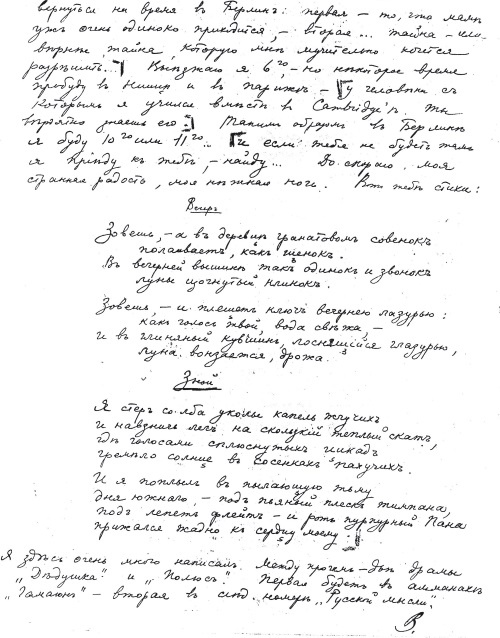 вернуться на время в Берлинъ: первая — то, что мамѣ
ужъ очень одиноко приходится, — вторая... тайна —
тайна которую мнѣ мучительно хочется
разрѣшить... Выѣзжаю я 6го, — но нѣкоторое время
пробуду въ Ниццѣ и въ Парижѣ — у человѣка съ
которымъ я учился вмѣстѣ въ Cambridg'ѣ. Ты
вѣроятно знаешь его. Такимъ образомъ въ Берлинѣ
я буду 10го или 11го.. И если тебя не будетъ тамъ
я приѣду къ тебѣ, — найду... До скораго моя
странная радость, моя нѣжная ночь. Вотъ тебѣ стихи:
Вечеръ
Зовешь, — а въ деревцѣ гранатовомъ совенокъ
полаиваетъ, какъ щенокъ.
Въ вечерней вышинѣ такъ одинокъ и звонокъ
луны изогнутый клинокъ.
Зовешь, — и плещетъ ключъ вечернею лазурью:
какъ голосъ твой, вода свѣжа, —
и въ глиняный кувшинъ, лоснящійся глазурью,
луна вонзается, дрожа.
Зной
Я стеръ со лба укосы капель жгучихъ
и навзничь легъ на скользкій теплый скатъ,
гдѣ голосами сплюснутыхъ цикадъ
гремѣло солнце въ сосенкахъ пахучихъ.
И я поплылъ въ пылающую тьму
дня южнаго, — подъ пьяный плескъ тимпана,
подъ лепетъ флейтъ — и ротъ пурпурный Пана
прижался жадно къ сердцу моему.
Я здѣсь очень много написалъ. Между прочимъ — двѣ драмы
„Дѣдушка" и „Полюсъ". Первая будетъ въ альманахѣ
„Гамаюнъ" — вторая въ слѣд. номерѣ „Русской мысли".
В.